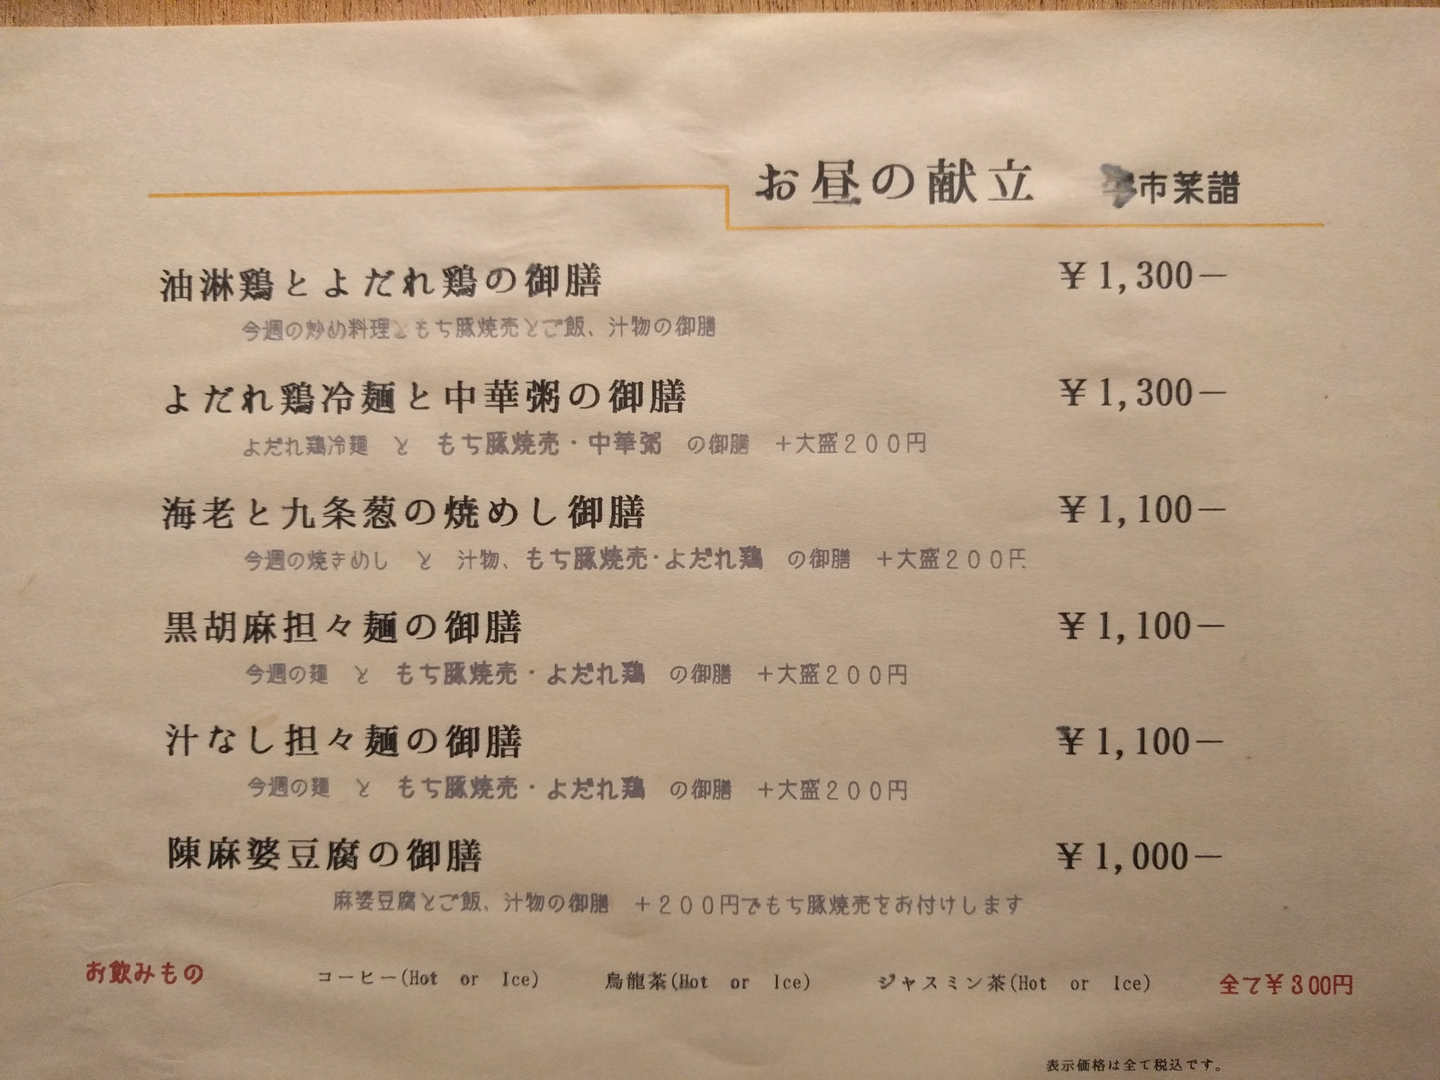 お昼の献立 市菜譜
油淋鶏とよだれ鶏の御膳 ¥1,300－
今週の炒め料理ともち豚焼売とご飯、汁物の御膳
よだれ鶏冷麺と中華粥の御膳 ¥1,300－
よだれ鶏冷麺 と もち豚焼売・中華粥 の御膳 ＋大盛２００円
海老と九条葱の焼めし御膳 ¥1,100－
今週の焼きめし と 汁物、もち豚焼売・よだれ鶏 の御膳 ＋大盛２００円
黒胡麻担々麺の御膳 ¥1,100－
今週の麺 と もち豚焼売・よだれ鶏 の御膳 ＋大盛２００円
汁なし担々麺の御膳 ¥1,100－
今週の麺 と もち豚焼売・よだれ鶏 の御膳 ＋大盛２００円
陳麻婆豆腐の御膳 ¥1,000－
麻婆豆腐とご飯、汁物の御膳 ＋２００円でもち豚焼売をお付けします
お飲みもの コーヒー(Hot or Ice) 烏龍茶(Hot or Ice) ジャスミン茶(Hot or Ice) 全て¥３００円
表示価格は全て税込です。